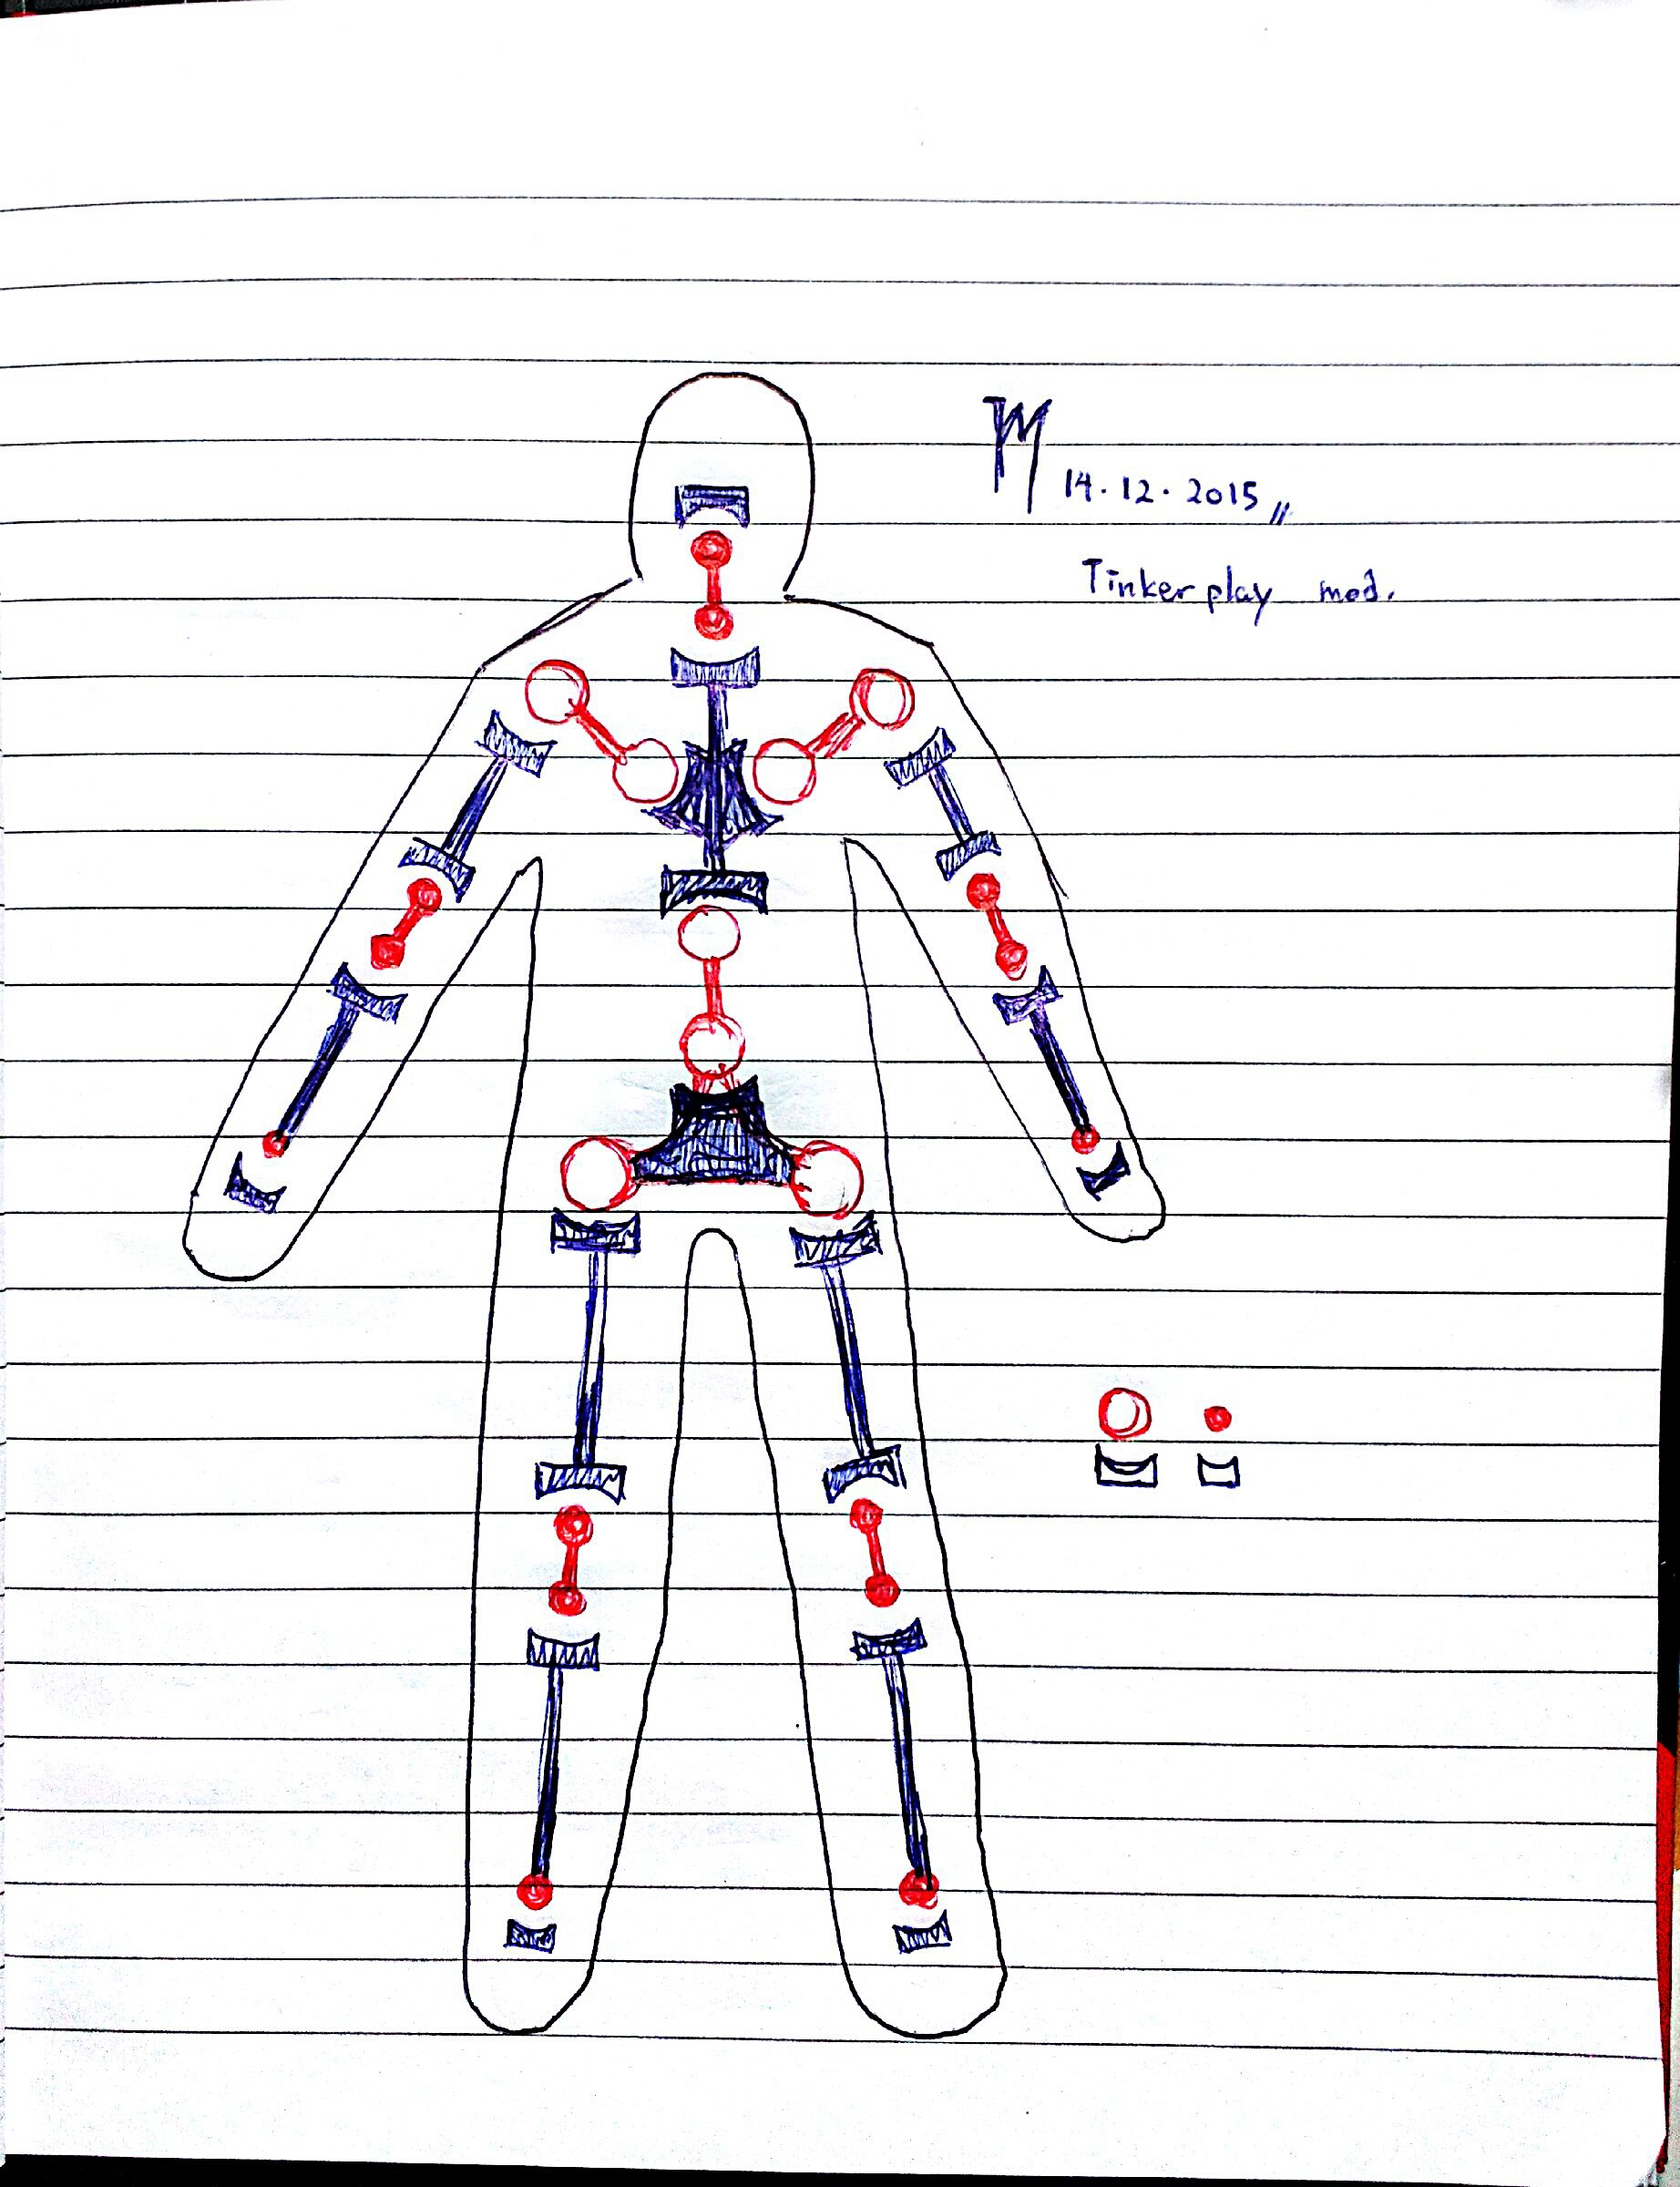 14.12.2015
Tinkerplay mod.